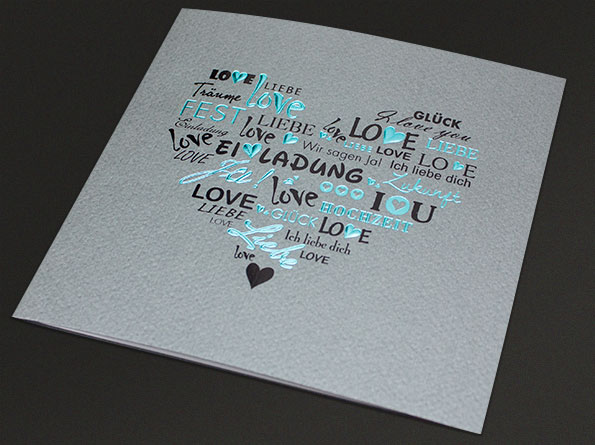 LOVE LIEBE
Träume love
GLÜCK
I love you
FEST LIEBE love LOVE LIEBE
Einladung love LIEBE LOVE LOVE
love EINLADUNG Wir sagen Ja! Ich liebe dich
LOVE JA! love Zukunft
LOVE I O U
LIEBE GLÜCK HOCHZEIT
LOVE Liebe LOVE
Ich liebe dich
love LOVE